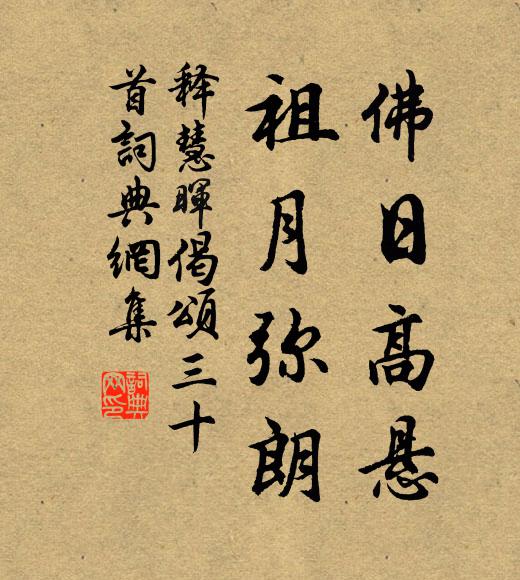 佛日高悬
祖月弥朗
释慧晖偈颂三十
首詞典網集
詞典
网印